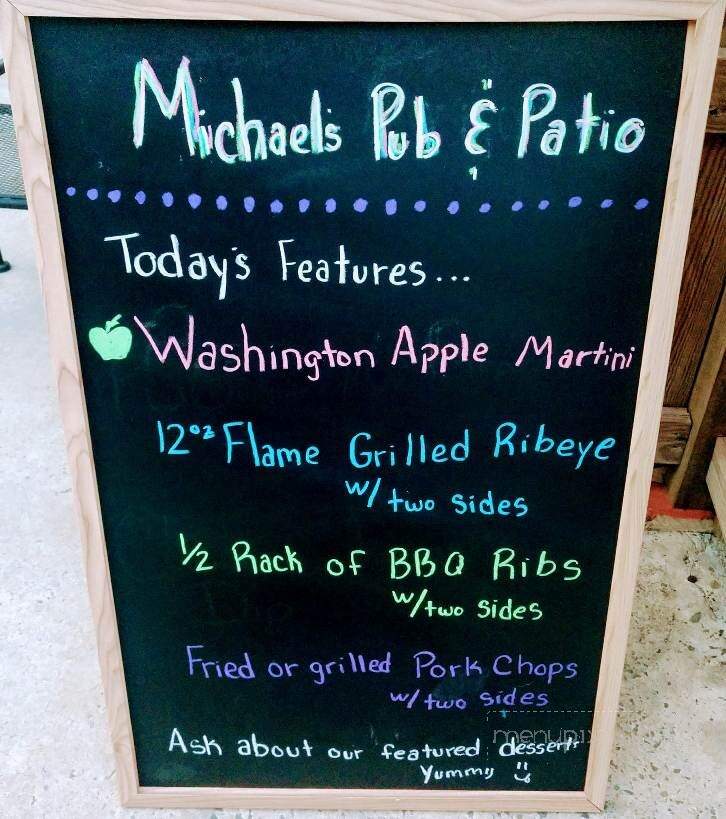 Michael's Pub & Patio
Today's Features...
Washington Apple Martini
12oz Flame Grilled Ribeye
w/ two sides
1/2 Rack of BBQ Ribs
w/two sides
Fried or grilled Pork Chops
w/ two sides
Ask about our featured dessert
Yummy
menupix